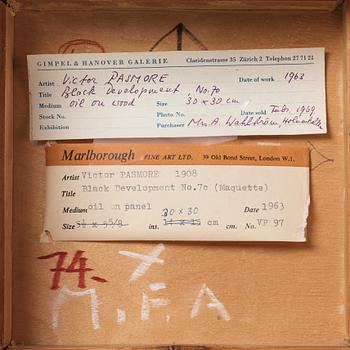 GIMPEL & HANOVER GALERIE Claridenstrasse 35 Zürich 2 Telephon 27 71 21
Artist Victor PASMORE Date of work 1963
Title Black Development, No. 70
Medium oil on wood Size 30 x 30 cm
Stock No. Photo No. Date sold Febr. 1969
Exhibition Purchaser Mrs A. Wahlström,
Marlborough FINE ART LTD. 39 Old Bond Street, London W.1.
Artist Victor PASMORE 1908
Title Black Development No.7c (Maquette)
Medium oil on panel Date 1963
30 x 30
Size 5½ x 5⅝ ins. 14 x 15 cm cm. No. VP 97
74. X
M.F.A